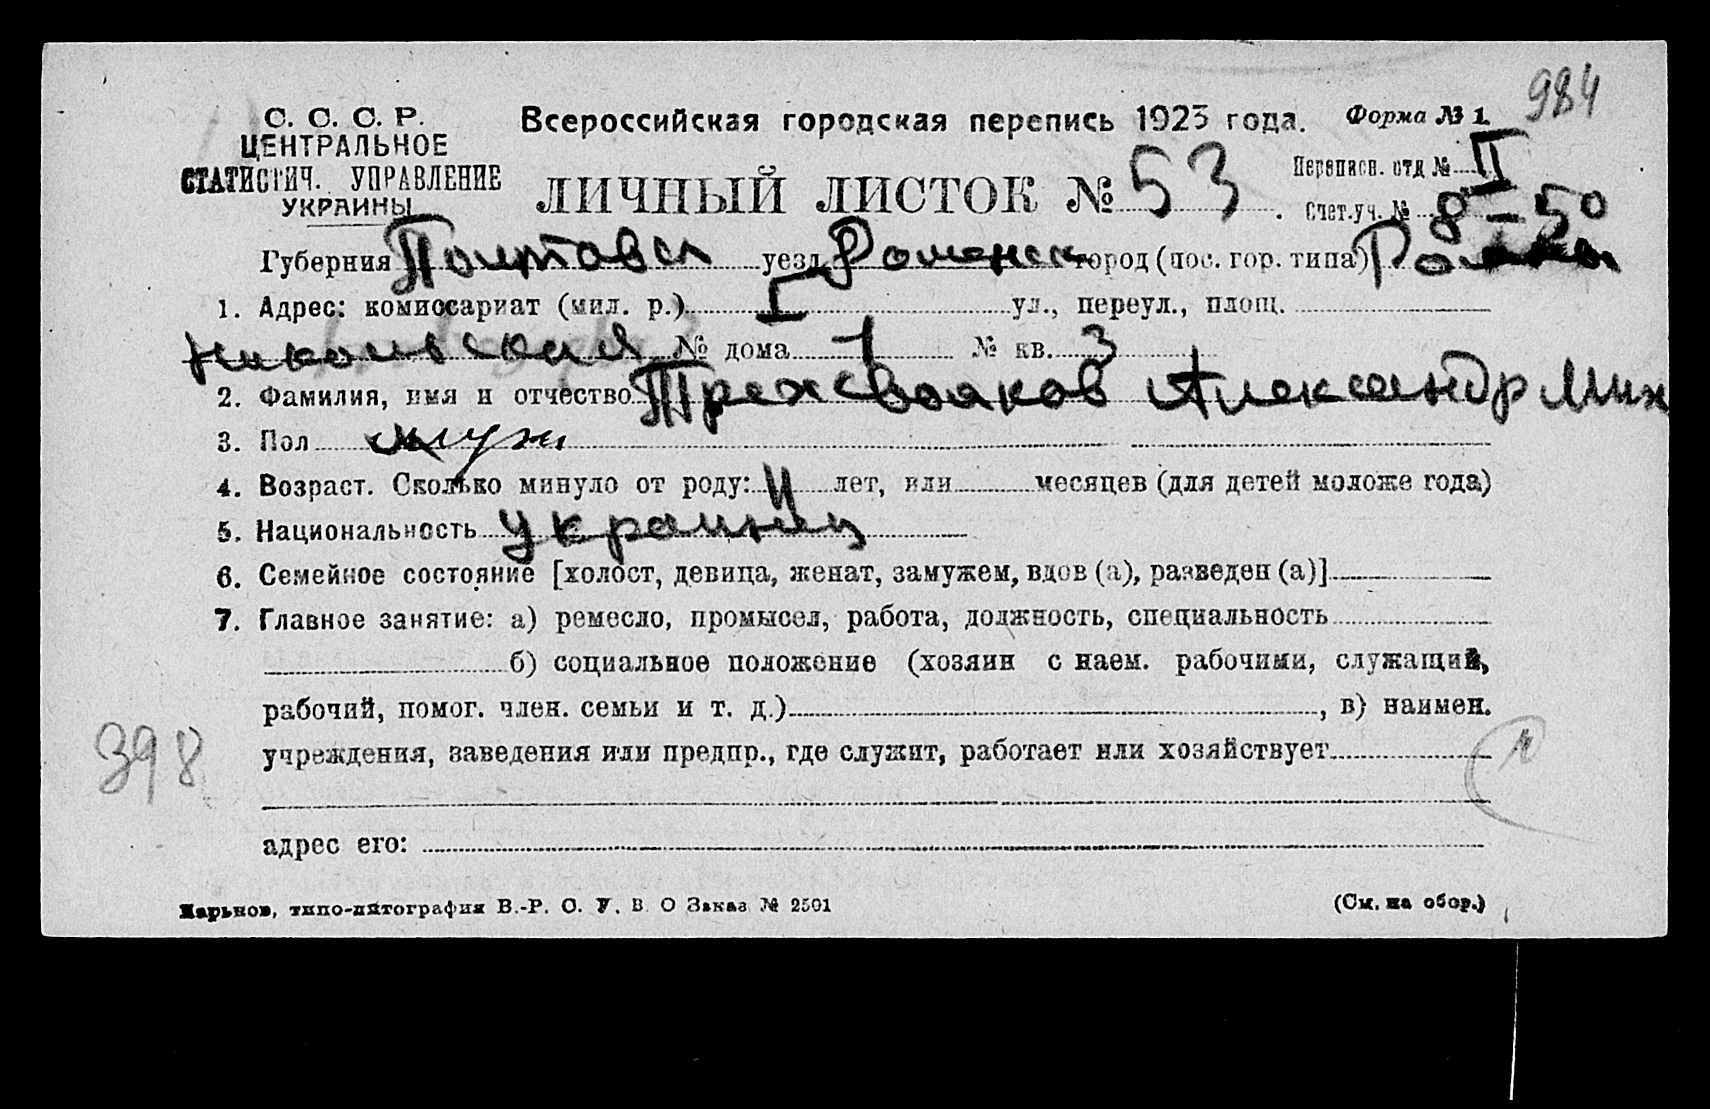 984
С. С. С. Р.
ЦЕНТРАЛЬНОЕ
СТАТИСТИЧ. УПРАВЛЕНИЕ
УКРАИНЫ
Всероссийская городская перепись 1923 года. Форма № 1.
ЛИЧНЫЙ ЛИСТОК № 53.
Переписн. отд № II
Счет. уч. № 8 – 50
Губерния Полтавск уезд Роменск город (пос. гор. типа) Ромны
1. Адрес: комиссариат (мил. р.) I ул., переул., площ.
Никольская № дома 1 № кв. 3
2. Фамилия, имя и отчество Александр Мих
3. Пол муж
4. Возраст. Сколько минуло от роду: 11 лет, или месяцев (для детей моложе года)
5. Национальность украинец
6. Семейное состояние [холост, девица, женат, замужем, вдов (а), разведен (а)]
7. Главное занятие: а) ремесло, промысел, работа, должность, специальность
б) социальное положение (хозяин с наем. рабочими, служащий,
рабочий, помог. член. семьи и т. д.), в) наимен.
учреждения, заведения или предпр., где служит, работает или хозяйствует
398
адрес его:
Харьков, типо-литография В.-Р. С. У. В. О Заказ № 2501
(См. на обор.)